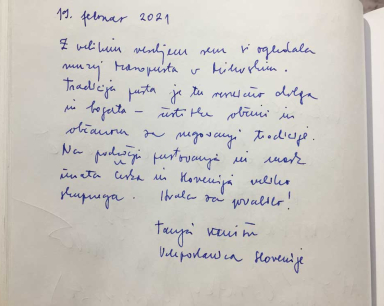 19. februar 2021
Z velikim veseljem sem si ogledala
muzej masopusta v Milevskem.
Tradicija pusta je tu resnično dolga
in bogata – čestitke občini in
občanom za negovanje tradicije.
Na področju pustovanja in mask
imata Češka in Slovenija veliko
skupnega. Hvala za povabilo!
Tanja
Veleposlanica Slovenije